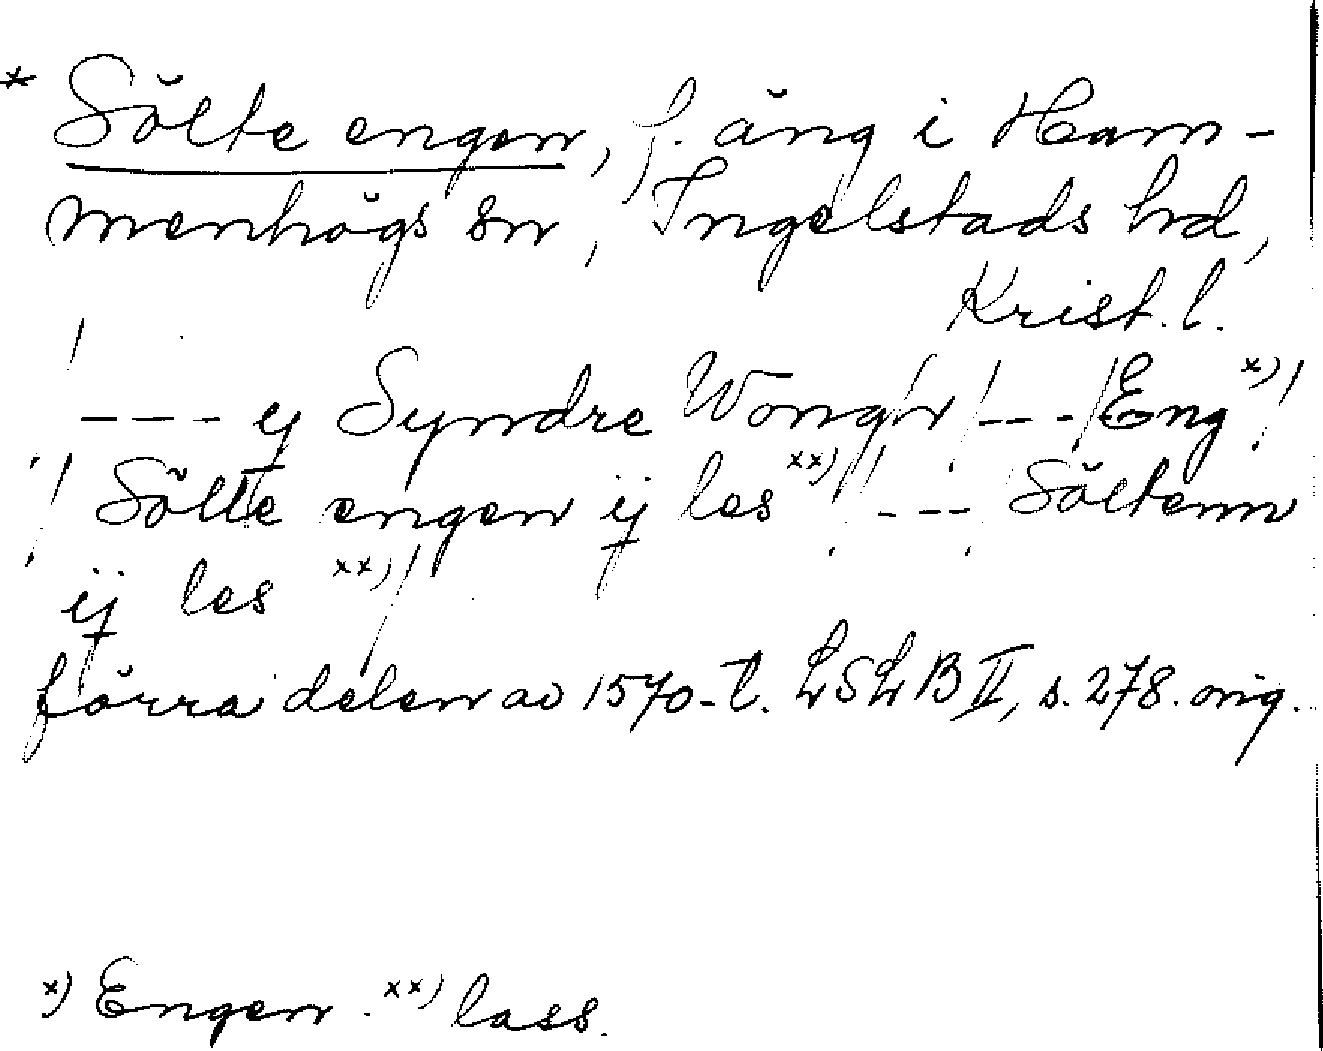 * Sölte engen, f. äng i Ham-
menhögs sn, Ingelstads hd,
Krist. l.
/ --- ij Syndre Wongn / --- / Eng x) /
/ Sölte engen ij les xx) / --- Söltenn
ij les xx) /
förra delen av 1570-t. LSLB II, s. 278. orig.
x) Engen. xx) lass.